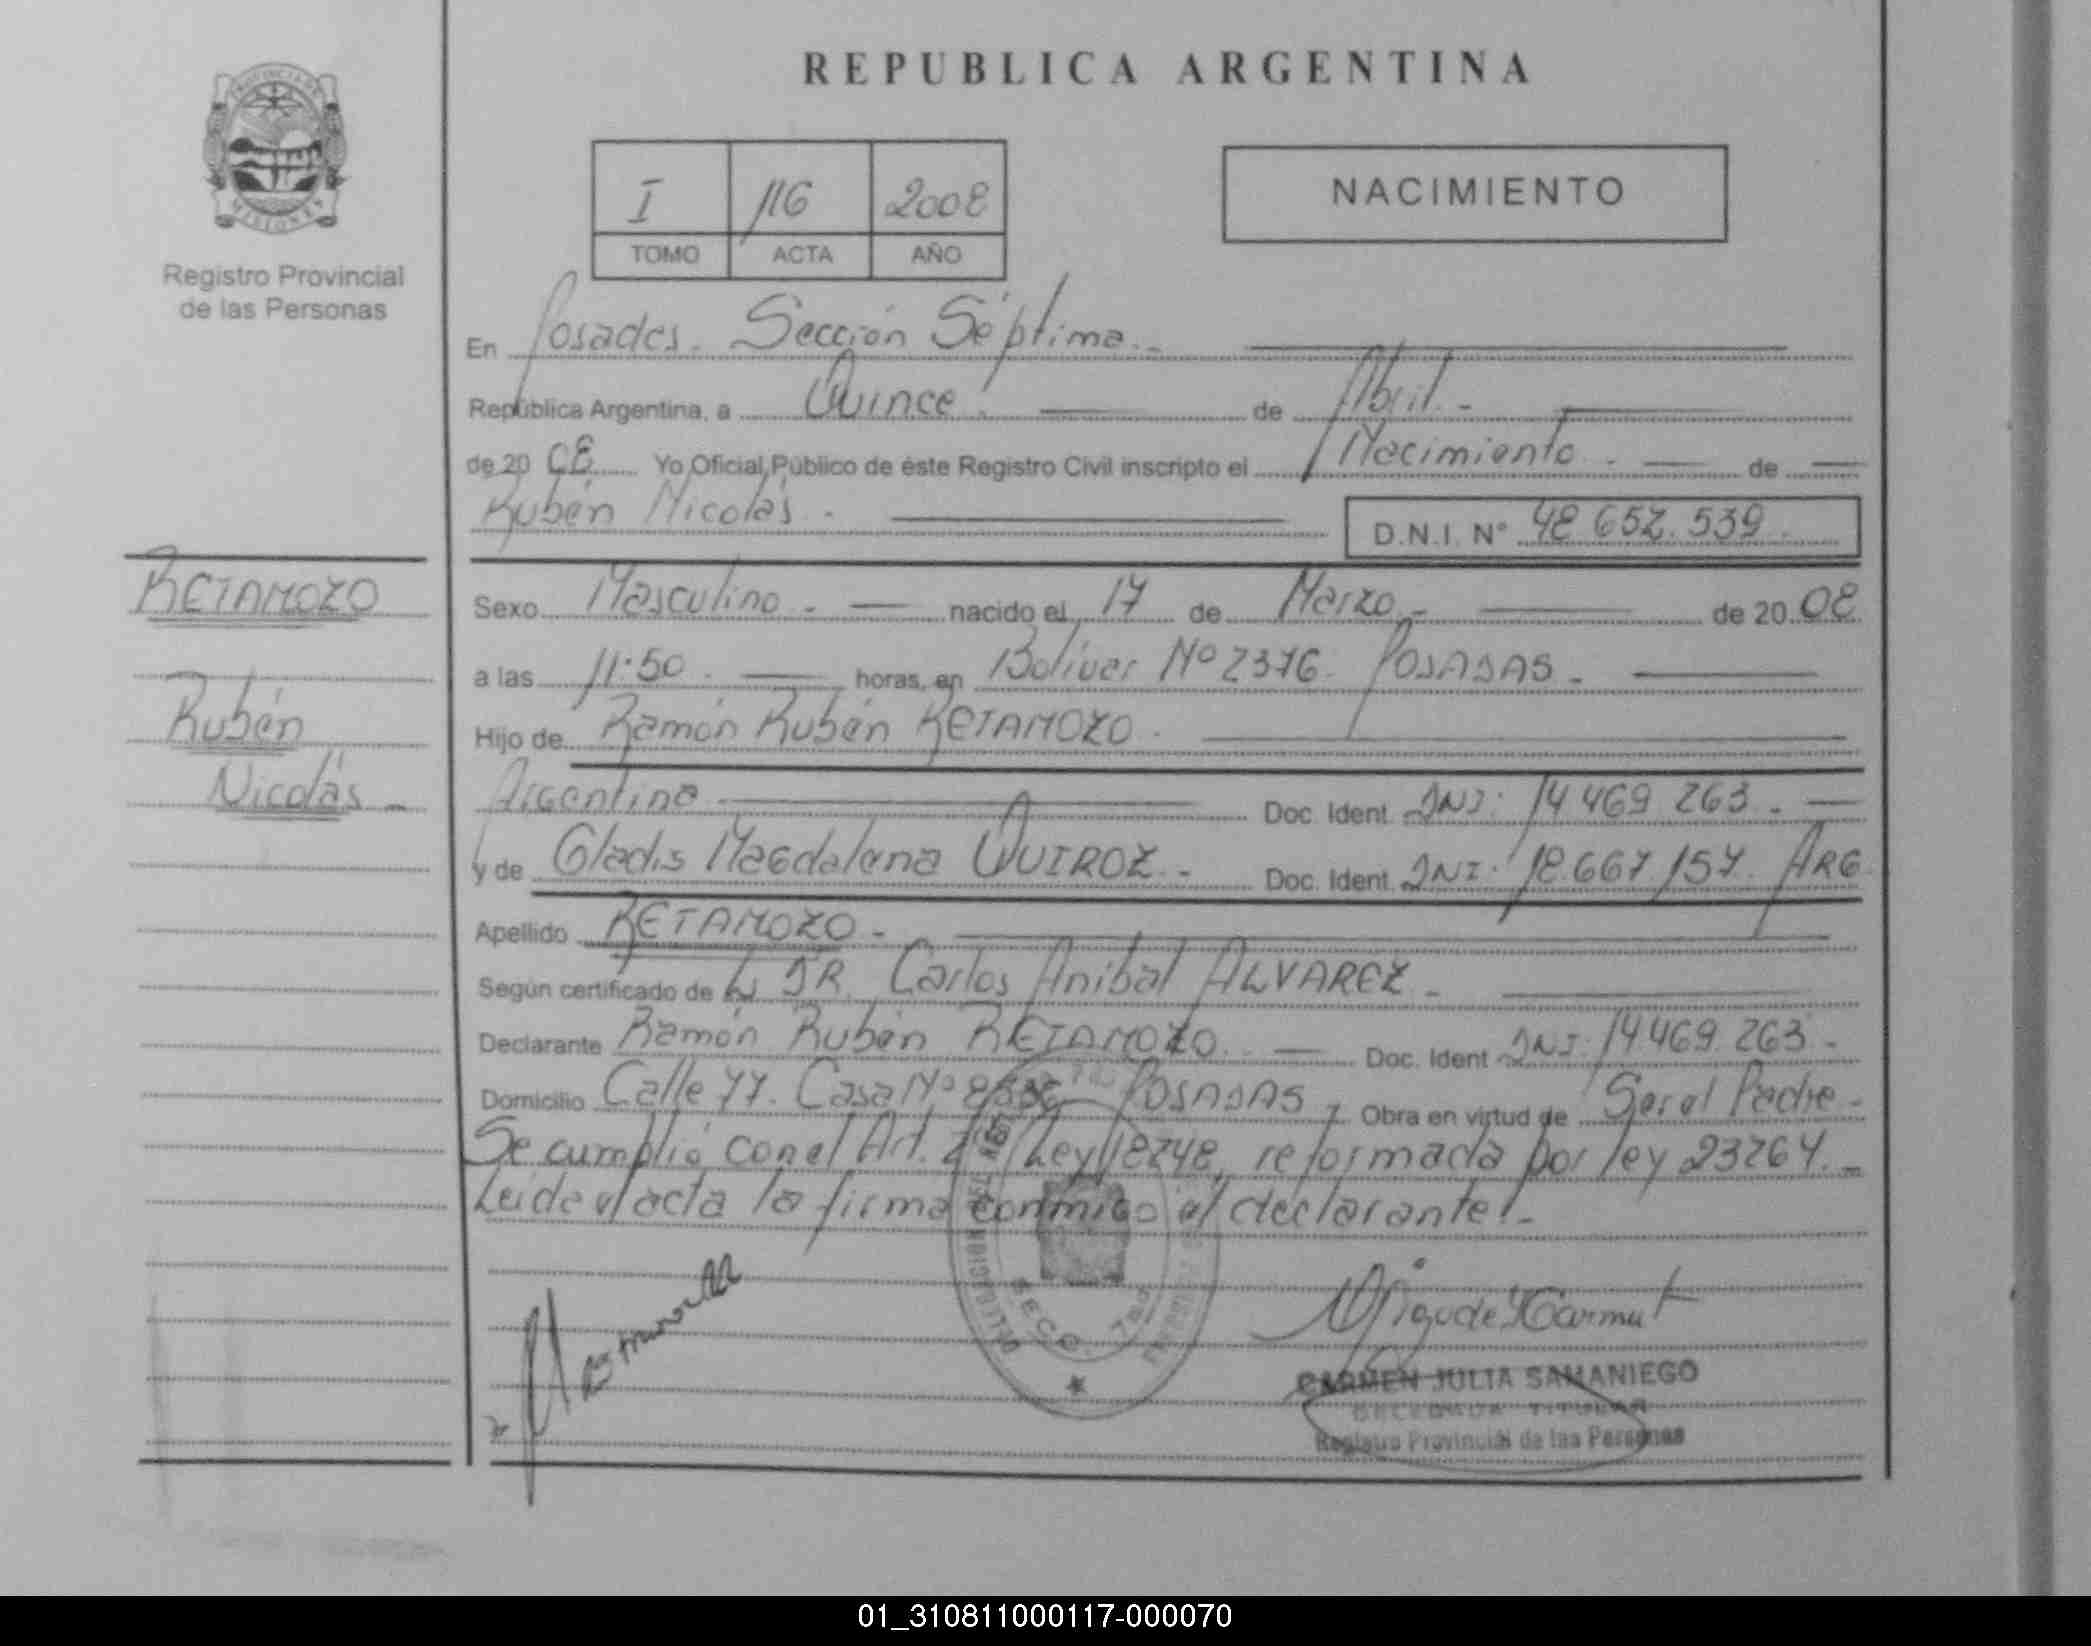 REPUBLICA ARGENTINA
PROVINCIA DE
MISIONES
Registro Provincial
de las Personas
I 116 2008
TOMO ACTA AÑO
NACIMIENTO
En Posadas. Sección Séptima.-
República Argentina, a Quince. de Abril.-
de 2008 Yo Oficial Público de éste Registro Civil inscripto el Nacimiento. de
Rubén Nicolás. D.N.I. Nº 48 652.539.
RETAMOZO
Rubén
Nicolás -
Sexo Masculino.- nacido el 17 de Marzo.- de 2008
a las 11:50. horas, en Bolívar Nº 2376. POSADAS.-
Hijo de Ramón Rubén RETAMOZO.
Argentino Doc. Ident. DNI: 14 469 263.-
y de Gladis Magdalena QUIROZ.- Doc. Ident. DNI: 18.667.157. ARG
Apellido RETAMOZO.-
Según certificado de DR. Carlos Anibal ALVAREZ.-
Declarante Ramón Rubén RETAMOZO. Doc. Ident DNI: 14469.263.-
Domicilio Calle 77. Casa Nº POSADAS Obra en virtud de Ser el Padre.-
Se cumplió con el Art. Ley 18248, reformada por ley 23264.-
Leída el acta la firma conmigo el declarante!-
SECC. 7ma
CARMEN JULIA SAMANIEGO
DELEGADA TITULAR
Registro Provincial de las Personas
01_310811000117-000070